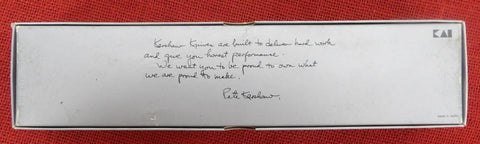 Kershaw Knives are built to deliver hard work
and give you honest performance.
We want you to be proud to own what
we are proud to make.
Pete Kershaw
KAI